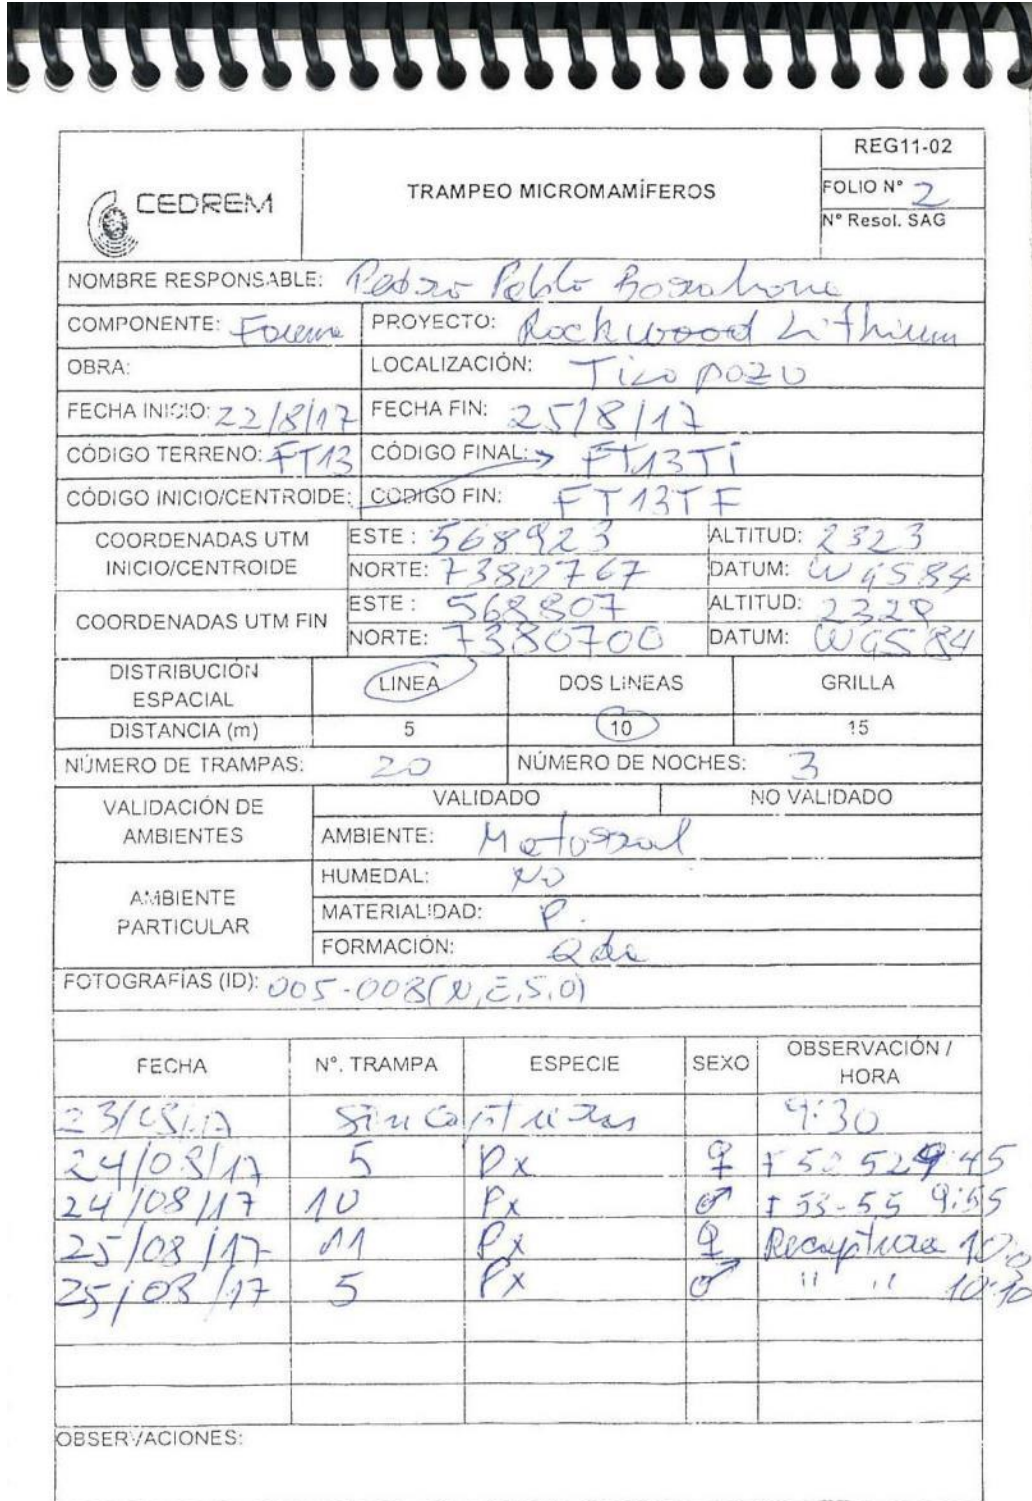 REG11-02
CEDREM
TRAMPEO MICROMAMÍFEROS
FOLIO N° 2
N° Resol. SAG
NOMBRE RESPONSABLE: Pedro Pablo
COMPONENTE: PROYECTO: Rockwood Lithium
OBRA: LOCALIZACIÓN: Tilopozo
FECHA INICIO: 22/8/17 FECHA FIN: 25/8/17
CÓDIGO TERRENO: FT13 CÓDIGO FINAL: FT13Ti
CÓDIGO INICIO/CENTROIDE: CÓDIGO FIN: FT13TF
COORDENADAS UTM INICIO/CENTROIDE ESTE : 568923 ALTITUD: 2323
NORTE: DATUM: WGS84
COORDENADAS UTM FIN ESTE : 568807 ALTITUD:
NORTE: 7380700 DATUM: WGS84
DISTRIBUCIÓN ESPACIAL LINEA DOS LINEAS GRILLA
DISTANCIA (m) 5 10 15
NÚMERO DE TRAMPAS: 20 NÚMERO DE NOCHES: 3
VALIDACIÓN DE AMBIENTES VALIDADO NO VALIDADO
AMBIENTE: Matorral
AMBIENTE PARTICULAR HUMEDAL: NO
MATERIALIDAD: P.
FORMACIÓN: Qda
FOTOGRAFÍAS (ID): 005-008(N,E,S,O)
FECHA N°. TRAMPA ESPECIE SEXO OBSERVACIÓN / HORA
23/08/17 Sin Capturas 9:30
24/08/17 5 Px ♀ F 50 52 9:45
24/08/17 10 Px ♂ F 53-55 9:55
25/08/17 11 Px ♀ Recaptura
25/08/17 5 Px ♂ " " 10:10
OBSERVACIONES: